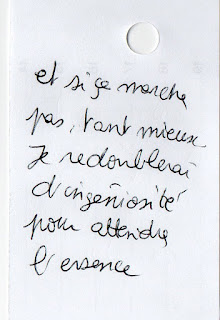 et si ça marche
pas, tant mieux
Je redoublerai
d'ingéniosité
pour attendre
l'essence